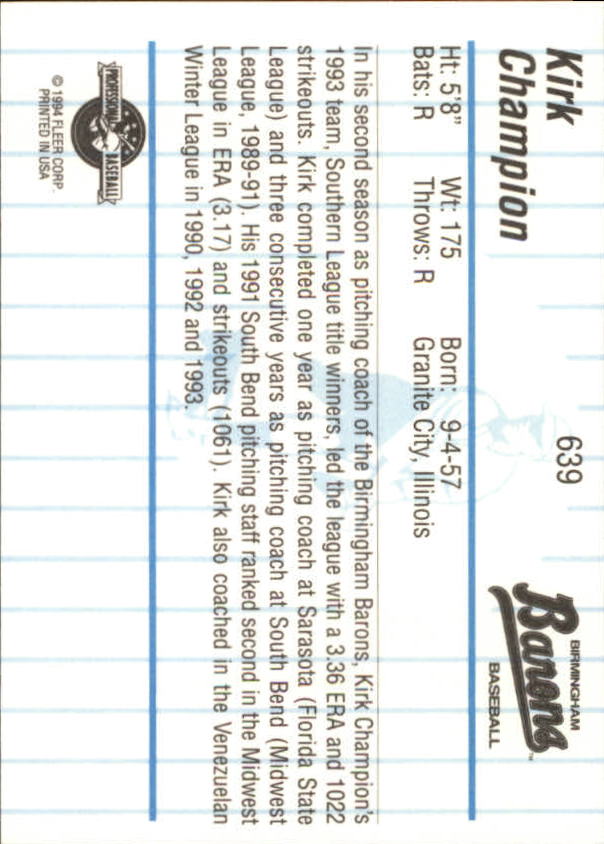 Kirk
Champion
639
BIRMINGHAM
Barons™
BASEBALL
Ht: 5'8" Wt: 175 Born: 9-4-57
Bats: R Throws: R Granite City, Illinois
In his second season as pitching coach of the Birmingham Barons, Kirk Champion's
1993 team, Southern League title winners, led the league with a 3.36 ERA and 1022
strikeouts. Kirk completed one year as pitching coach at Sarasota (Florida State
League) and three consecutive years as pitching coach at South Bend (Midwest
League, 1989-91). His 1991 South Bend pitching staff ranked second in the Midwest
League in ERA (3.17) and strikeouts (1061). Kirk also coached in the Venezuelan
Winter League in 1990, 1992 and 1993.
PROFESSIONAL BASEBALL
© 1994 FLEER CORP.
PRINTED IN USA